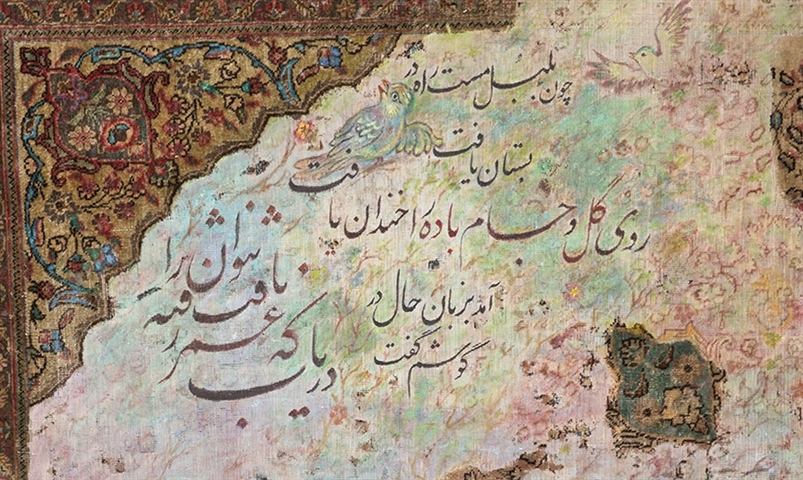 چون بلبل مست راه در
بستان یافت
روی گل و جام باده را خندان یافت
آمد بزبان حال در
گوشم گفت
دریاب که
عمر رفته
را نتوان یافت